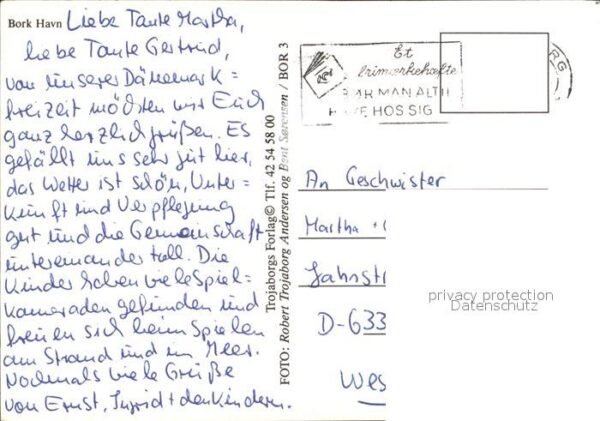 Bork Havn
Liebe Tante Martha,
liebe Tante Gertrud,
von unserer Dänemark=
freizeit möchten wir Euch
ganz herzlich grüßen. Es
gefällt uns sehr gut hier,
das Wetter ist schön, Unter=
kunft und Verpflegung
gut und die Gemeinschaft
untereinander toll. Die
Kinder haben viele Spiel=
kameraden gefunden und
freuen sich beim Spielen
am Strand und im Meer.
Nochmals viele Grüße
von Ernst, Ingrid + den Kindern.
Trojaborgs Forlag© Tlf. 42 54 58 00
FOTO: Robert Trojaborg Andersen og Bent Sørensen / BOR 3
Et
frimærkehæfte
BØR MAN ALTID
HAVE HOS SIG
RG
An Geschwister
Martha
Jahnstr
D-633
Wes
privacy protection
Datenschutz